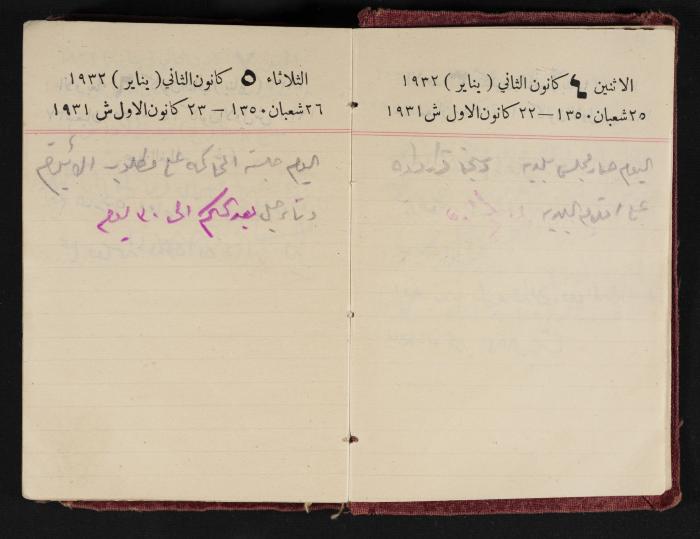 الاثنين ٤ كانون الثاني ( يناير ) ١٩٣٢
٢٥ شعبان ١٣٥٠ — ٢٢ كانون الاول ش ١٩٣١
اليوم صار مجلس بلدية
على
الثلاثاء ٥ كانون الثاني ( يناير ) ١٩٣٢
٢٦ شعبان ١٣٥٠ — ٢٣ كانون الاول ش ١٩٣١
اليوم جلسة المحاكمه على
وتأجيل بعد الحكم الى ٣٠ يوم